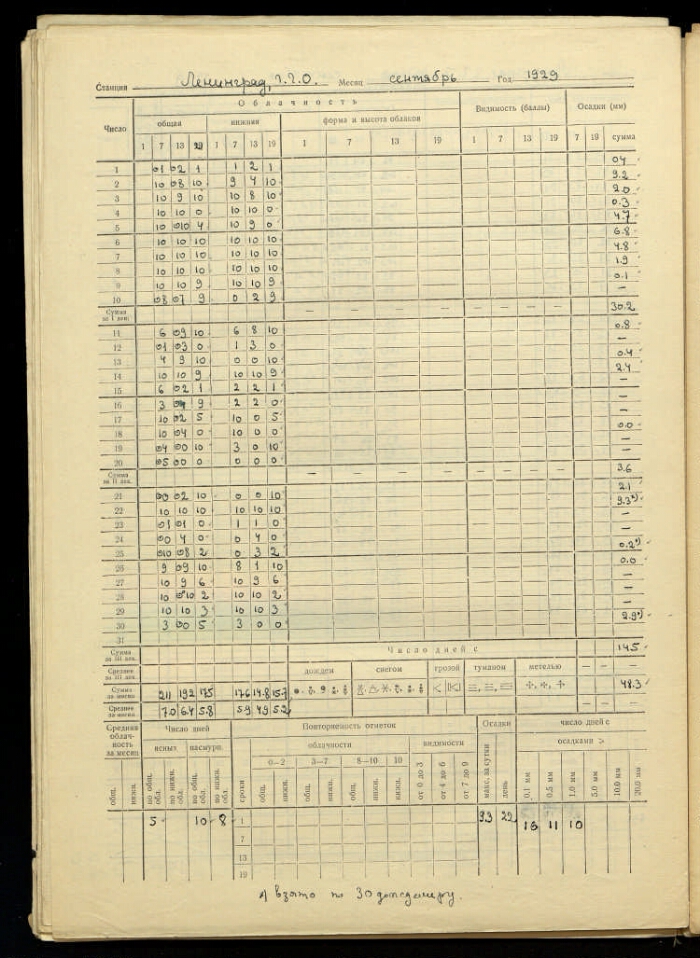 Станция Ленинград, Г.Г.О. Месяц сентябрь Год 1929
Число
Облачность
Видимость (баллы)
Осадки (мм)
общая
нижняя
форма и высота облаков
1 7 13 19 1 7 13 19 1 7 13 19 1 7 13 19 7 19 сумма
1 01 02 1 1 2 1
2 10 08 10 9 4 10 9.2
3 10 9 10 10 8 10 2.0
4 10 10 0 10 10 0 0.3
5 10 010 4 10 9 0 4.7
6 10 10 10 10 10 10 6.8
7 10 10 10 10 10 10 4.8
8 10 10 10 10 10 10 1.9
9 10 10 9 10 10 9 0.1
10 08 07 9 0 2 9 —
Сумма за I дек. — — — — — — — — 30.2
11 6 09 10 6 8 10 0.8
12 01 03 0 1 3 0 —
13 4 9 10 0 0 10 0.4
14 10 10 9 10 10 9 2.4
15 6 02 1 2 2 1 —
16 3 9 2 2 0 —
17 10 02 5 10 0 5 —
18 10 04 0 10 0 0 0.0
19 04 00 10 3 0 10 —
20 05 00 0 0 0 0 —
Сумма за II дек. — — — — — — — — 3.6
21 00 02 10 0 0 10 2.1
22 10 10 10 10 10 10 9.3*)
23 01 01 0 1 1 0 —
24 00 4 0 0 4 0 —
25 010 08 2 0 3 2 0.2*)
26 9 09 10 8 1 10 0.0
27 10 9 6 10 9 6 —
28 10 010 2 10 10 2 —
29 10 10 3 10 10 3 —
30 3 00 5 3 0 0 2.9*)
31
Сумма за III дек. Число дней с — — 14.5
Среднее за III дек. дождем снегом грозой туманом метелью — —
Сумма за месяц 211 192 175 176 148 157 — — 48.3
Среднее за месяц 7.0 6.4 5.8 5.9 4.9 5.2 — —
Средняя облачность за месяц
Число дней
Повторяемость отметок
Осадки
число дней с
ясных пасмурн.
облачности
видимости
осадками >
0—2 3—7 8—10 10
общ. нижн. по общ. обл. по нижн. обл. по общ. обл. по нижн. обл. сроки общ. нижн. общ. нижн. общ. нижн. общ. нижн. от 0 до 3 от 4 до 6 от 7 до 9 макс. за сутки день 0,1 мм 0,5 мм 1,0 мм 5,0 мм 10,0 мм 20,0 мм
5 10 8 1 9.3 22 11 10
7
13
19
*) взято по 30 дождемеру.